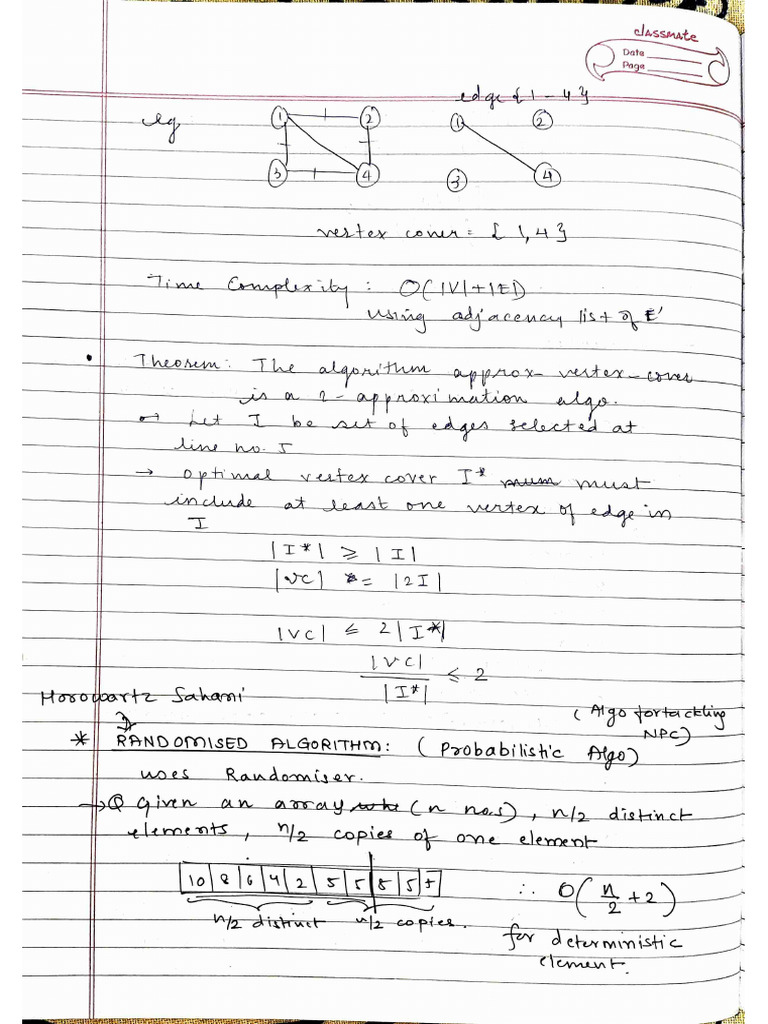 classmate
Date
Page
edge {1 - 4}
eg
1 2 1 2
3 4 3 4
vertex cover = { 1, 4 }
Time Complexity : O(|V|+|E|)
using adjacency list of E'
• Theorem: The algorithm approx-vertex-cover
is a 2-approximation algo.
→ Let I be set of edges selected at
line no. 5
→ optimal vertex cover I* must
include at least one vertex of edge in
I
|I*| ⩾ |I|
|VC| = |2I|
|VC| ⩽ 2|I*|
|VC|
/|I*| ⩽ 2
Horowartz Sahani
(Algo for tackling
NPC)
* RANDOMISED ALGORITHM: (Probabilistic Algo)
uses Randomiser.
→ Q Given an array (n nos), n/2 distinct
elements, n/2 copies of one element
10 8 6 4 2 5 5 5 5 5
∴ O(n/2 + 2)
n/2 distinct n/2 copies.
for deterministic
element.